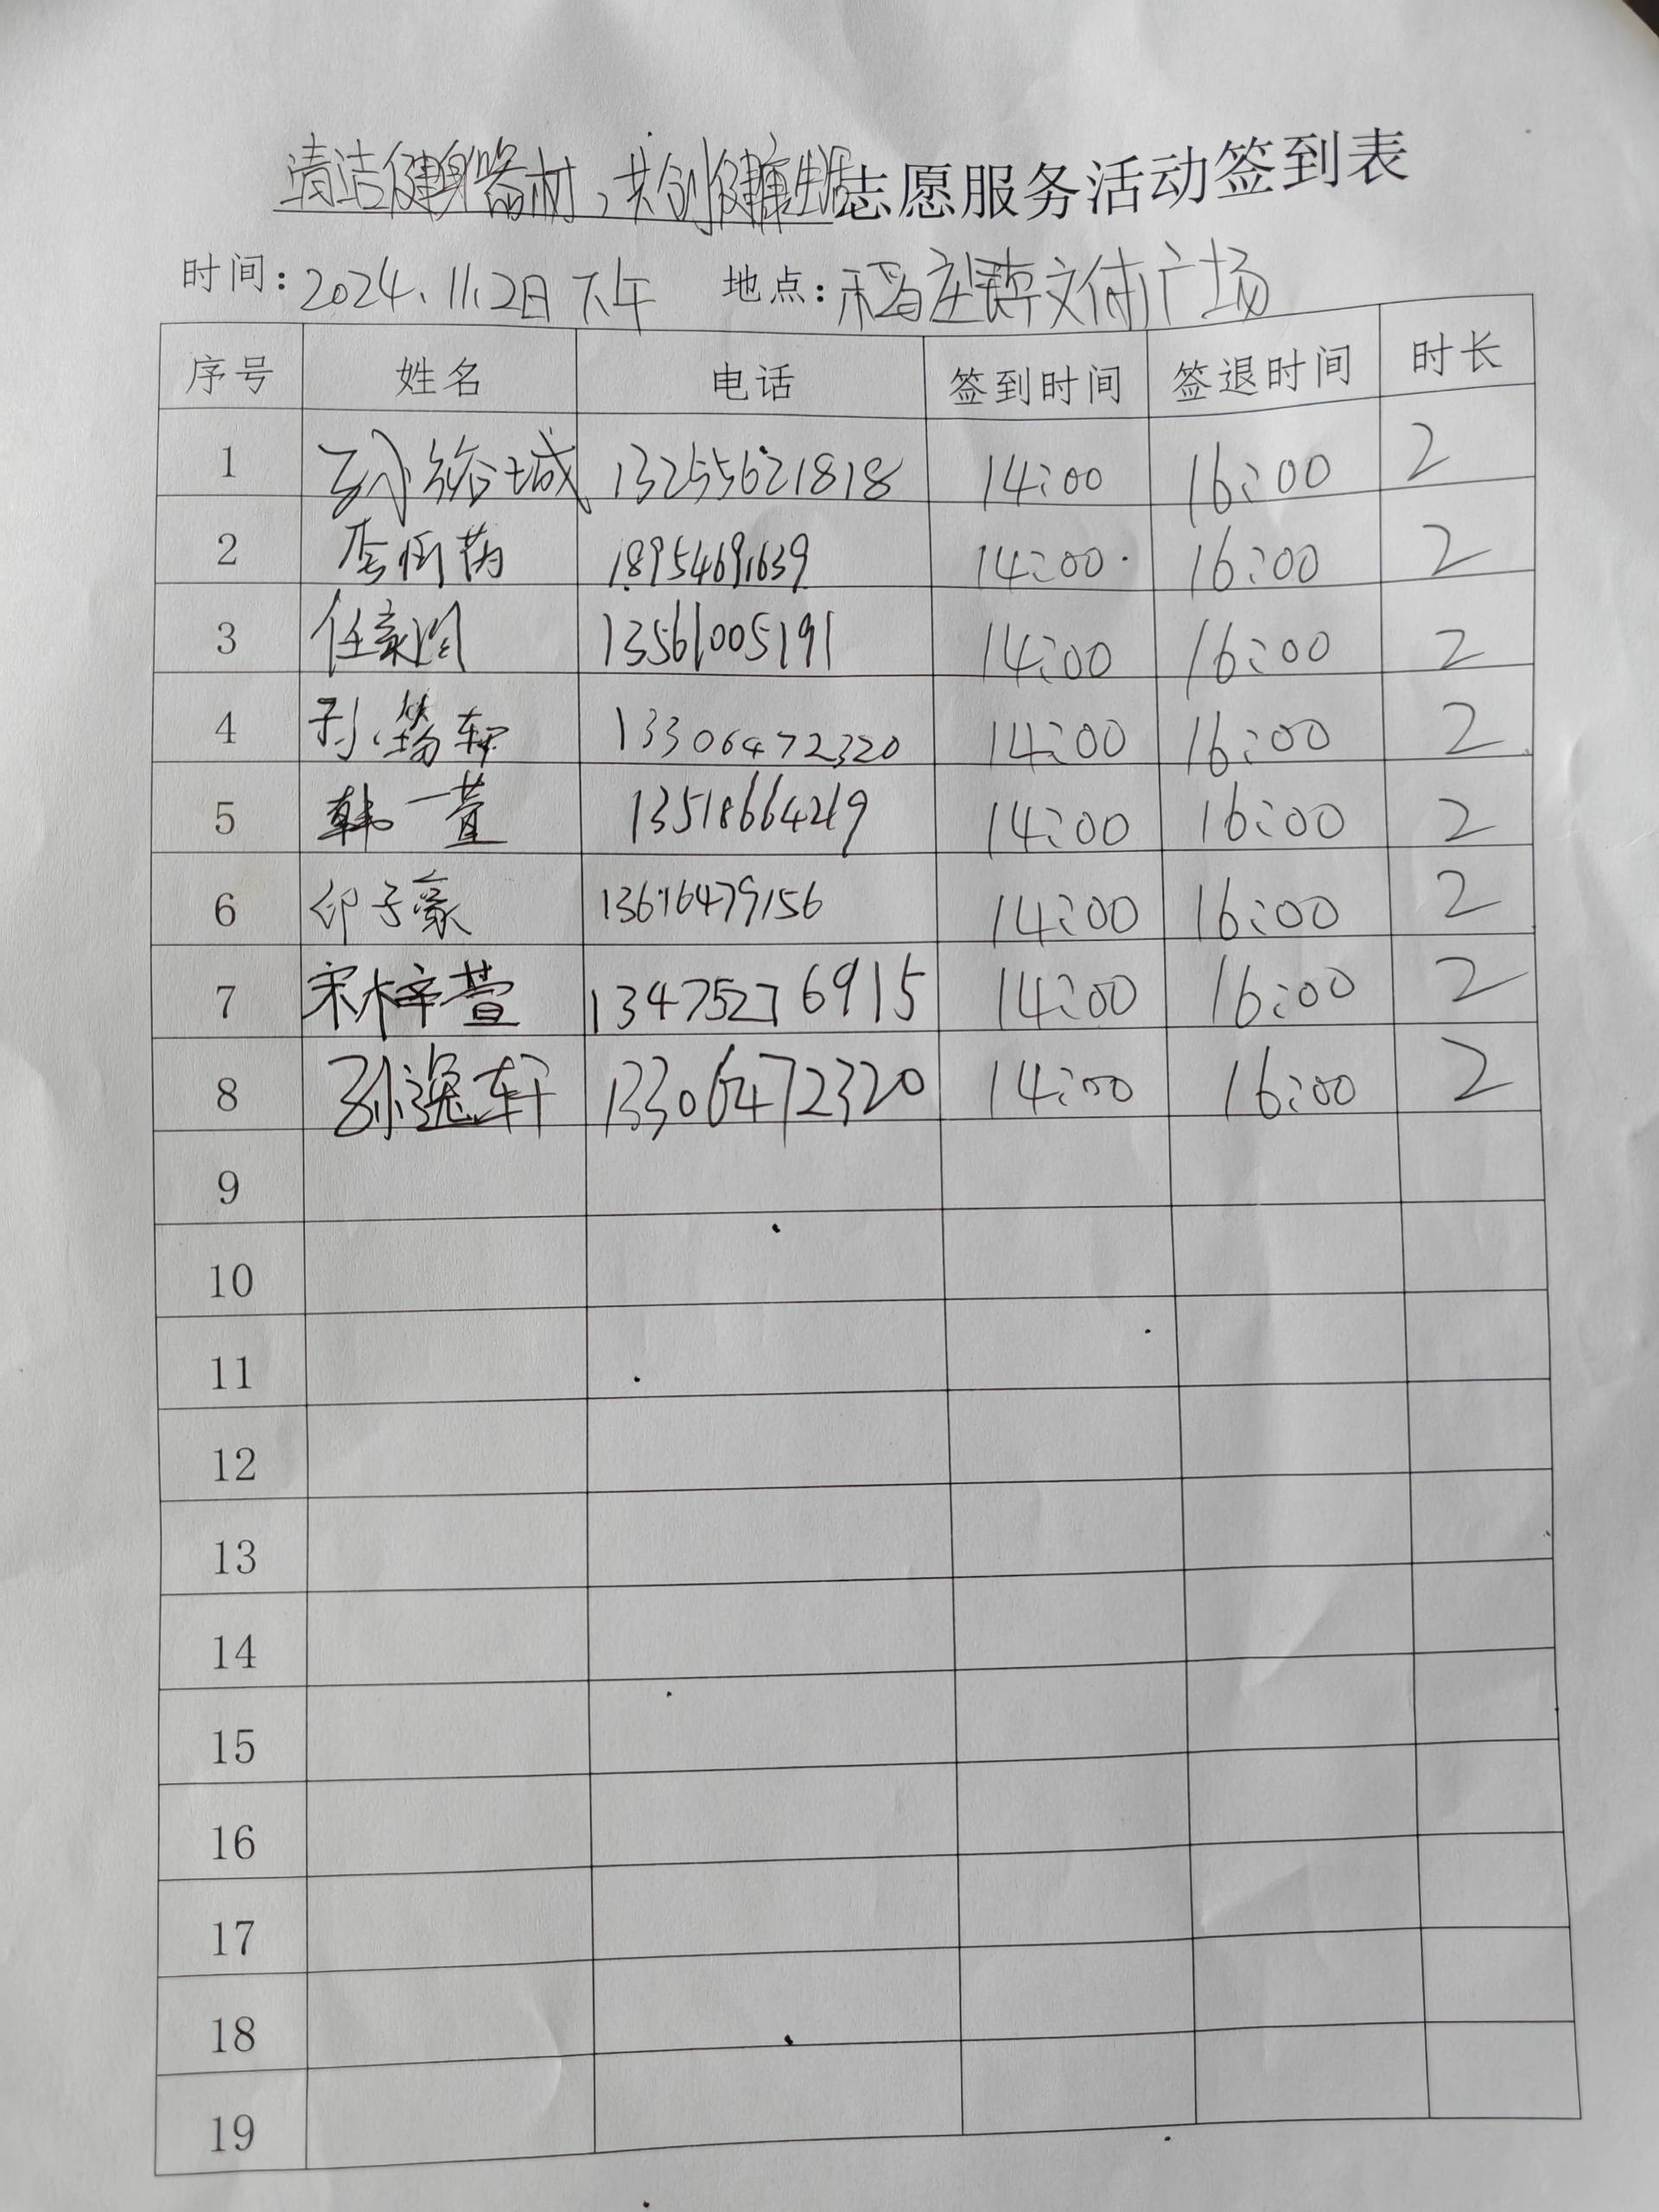 清洁健身器材，共创健康生活志愿服务活动签到表
时间：2024.11.2日下午 地点：稻庄镇文体广场
序号 姓名 电话 签到时间 签退时间 时长
1 孙 城 13255621818 14:00 16:00 2
2 李 18954691639 14:00 16:00 2
3 任豪润 13561005191 14:00 16:00 2
4 孙 轩 13306472320 14:00 16:00 2
5 韩一萱 13518664219 14:00 16:00 2
6 子豪 13616479156 14:00 16:00 2
7 宋梓萱 13475276915 14:00 16:00 2
8 孙逸轩 13306472320 14:00 16:00 2
9
10
11
12
13
14
15
16
17
18
19